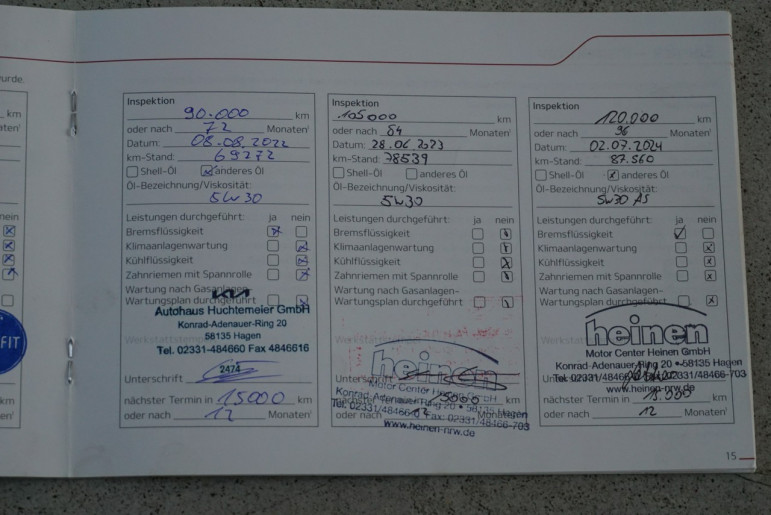 urde.
km
nein
km
Inspektion
90.000 km
oder nach 72 Monaten¹
Datum: 08.08.2022
km-Stand: 69272
Shell-Öl anderes Öl
Öl-Bezeichnung/Viskosität:
5W30
Leistungen durchgeführt: ja nein
Bremsflüssigkeit
Klimaanlagenwartung
Kühlflüssigkeit
Zahnriemen mit Spannrolle
Wartung nach Gasanlagen-
Wartungsplan durchgeführt
KIA
Autohaus Huchtemeier GmbH
Konrad-Adenauer-Ring 20
58135 Hagen
Tel. 02331-484660 Fax 4846616
Unterschrift 2474
nächster Termin in 15000 km
oder nach 12 Monaten¹
Inspektion
105000 km
oder nach 84 Monaten¹
Datum: 28.06.2023
km-Stand: 78539
Shell-Öl anderes Öl
Öl-Bezeichnung/Viskosität:
5W30
Leistungen durchgeführt: ja nein
Bremsflüssigkeit
Klimaanlagenwartung
Kühlflüssigkeit
Zahnriemen mit Spannrolle
Wartung nach Gasanlagen-
Wartungsplan durchgeführt
heinen
Motor Center
Konrad-Adenauer-Ring 20 • 58135 Hagen
Fax: 02331/48466-703
www.heinen-nrw.de
15000 km
oder nach 12 Monaten¹
Inspektion
120.000 km
oder nach 96 Monaten¹
Datum: 02.07.2024
km-Stand: 87.560
Shell-Öl anderes Öl
Öl-Bezeichnung/Viskosität:
5W30 AS
Leistungen durchgeführt: ja nein
Bremsflüssigkeit
Klimaanlagenwartung
Kühlflüssigkeit
Zahnriemen mit Spannrolle
Wartung nach Gasanlagen-
Wartungsplan durchgeführt
heinen
Motor Center Heinen GmbH
Konrad-Adenauer-Ring 20 • 58135 Hagen
www.heinen-nrw.de
nächster Termin in 15.000 km
oder nach 12 Monaten¹
FIT
15